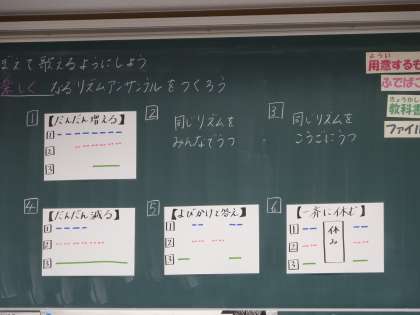 覚えて歌えるようにしよう
楽しくなるリズムアンサンブルをつくろう
用意するも
ふでばこ
教科書
ファイル
1
【だんだん増える】
1
2
3
2
同じリズムを
みんなでうつ
3
同じリズムを
こうごにうつ
4
【だんだん減る】
1
2
3
5
【よびかけと答え】
1
2
3
6
【一斉に休む】
1
2
3
休み